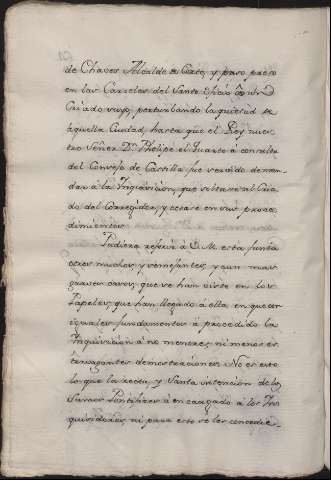 de Chaves Alcalde de Corte, y puso preso
en las Carzeles del Santo Oficio â un
Criado suyo, perturbando la quietud de
aquella Ciudad, hasta que el Rey nues
tro Señor Dn. Phelipe el Quarto â consulta
del Consejo de Castilla fue servido de man
dar â la Inquisicion, que soltase al Cria
do del Corregidor, y cesase en sus proce
dimientos.
Pudiera referir â V. M. esta Junta
otros muchos, y semejantes, y aun mas
graves casos, que se han visto en los
Papeles, que han llegado â ella, en que con
iguales fundamentos â procedido la
Inquisicion â no menores, ni menos es
trabagantes demostraciones. No es esto
lo que la recta, y Santa intencion de los
Sumos Pontifices â encargado â los In
quisidores, ni para esto se les concedie